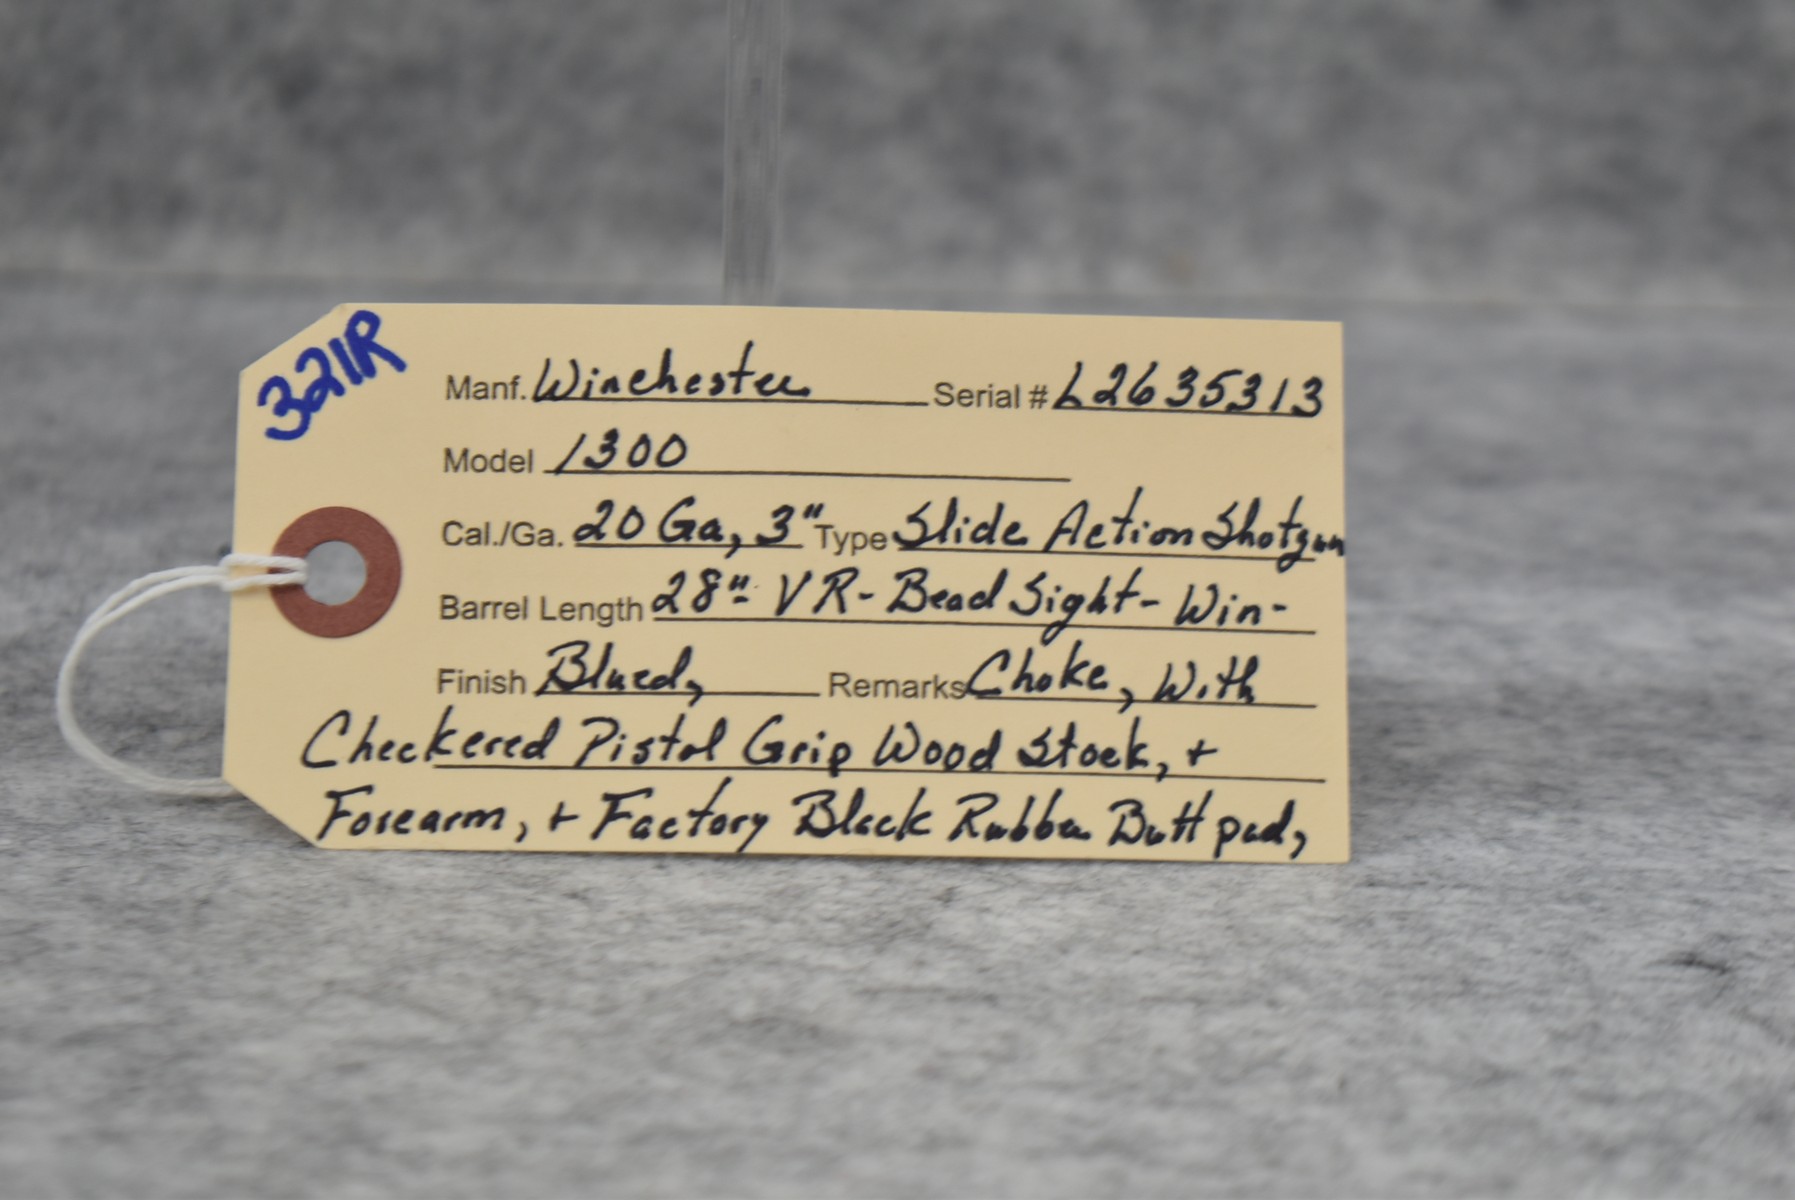 321R
Manf. Winchester Serial # L2635313
Model 1300
Cal./Ga. 20 Ga, 3" Type Slide Action Shotgun
Barrel Length 28"- VR- Bead Sight- Win-
Finish Blued, Remarks Choke, With
Checkered Pistol Grip Wood Stock, +
Forearm, + Factory Black Rubber Butt pad,